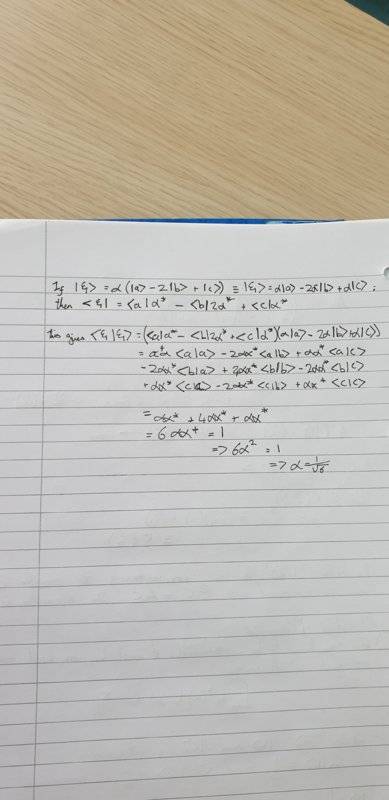 If |ξ₁> = α(|a> - 2|b> + |c>) ≡ |ξ₁> = α|a> - 2α|b> + α|c>,
then <ξ₁| = <a|α* - <b|2α* + <c|α*
This gives <ξ₁|ξ₁> = (<a|α* - <b|2α* + <c|α*)(α|a> - 2α|b> + α|c>)
= α*α <a|a> - 2αα* <a|b> + αα* <a|c>
- 2αα* <b|a> + 4αα* <b|b> - 2αα* <b|c>
+ αα* <c|a> - 2αα* <c|b> + αα* <c|c>
= αα* + 4αα* + αα*
= 6αα* = 1
=> 6α² = 1
=> α = 1/√6